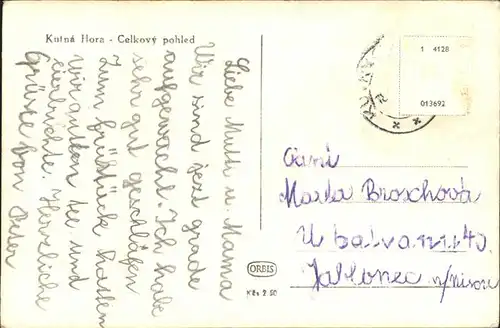 Kutná Hora - Celkový pohled
Liebe Mutti u. Mama
Wir sind jezt grade
aufgewacht. Ich habe
sehr gut geschlafen
Zum frühstück hatten
wir guten tee und
Herzliche
Grüsse von Peter
1 4128
013692
Marta Broschová
U balvanu 40
Jablonec n/Nisou
ORBIS
Kčs 2.50